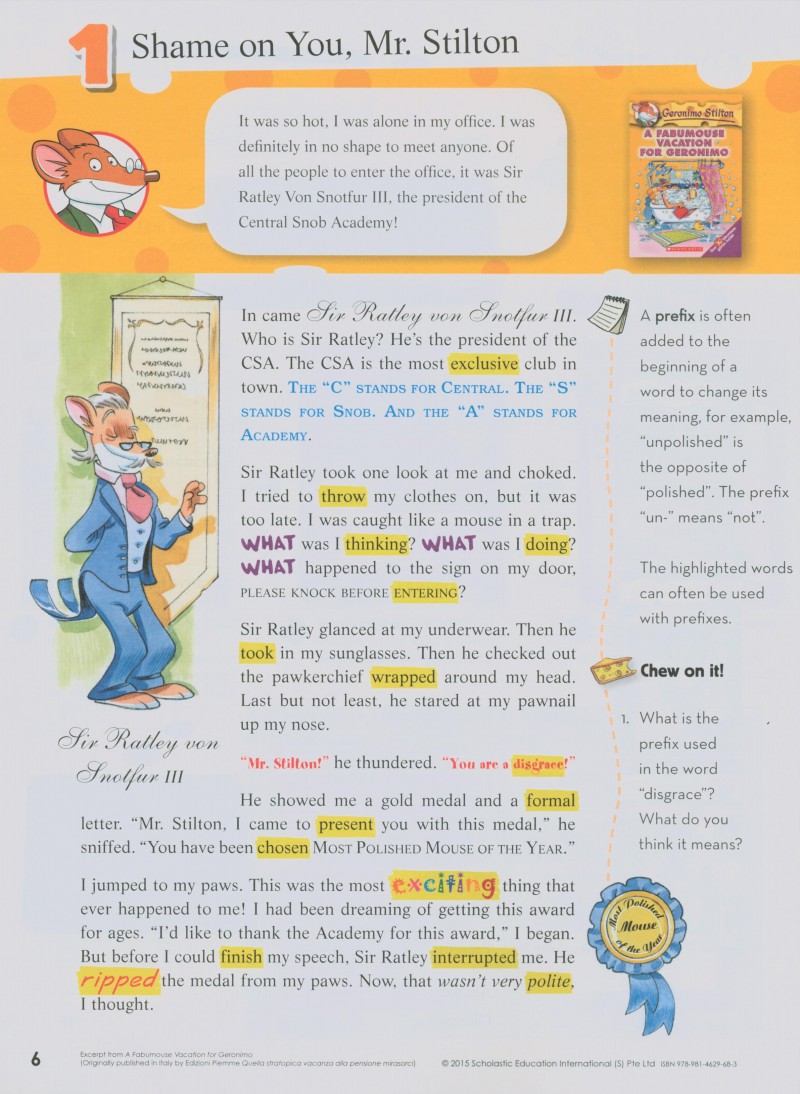 1 Shame on You, Mr. Stilton
It was so hot, I was alone in my office. I was
definitely in no shape to meet anyone. Of
all the people to enter the office, it was Sir
Ratley Von Snotfur III, the president of the
Central Snob Academy!
Geronimo Stilton
A FABUMOUSE
VACATION
FOR GERONIMO
SCHOLASTIC
In came Sir Ratley von Snotfur III.
Who is Sir Ratley? He's the president of the
CSA. The CSA is the most exclusive club in
town. The “C” stands for Central. The “S”
stands for Snob. And the “A” stands for
Academy.
Sir Ratley took one look at me and choked.
I tried to throw my clothes on, but it was
too late. I was caught like a mouse in a trap.
WHAT was I thinking? WHAT was I doing?
WHAT happened to the sign on my door,
PLEASE KNOCK BEFORE ENTERING?
Sir Ratley glanced at my underwear. Then he
took in my sunglasses. Then he checked out
the pawkerchief wrapped around my head.
Last but not least, he stared at my pawnail
up my nose.
Sir Ratley von
Snotfur III
“Mr. Stilton!” he thundered. “You are a disgrace!”
He showed me a gold medal and a formal
letter. “Mr. Stilton, I came to present you with this medal,” he
sniffed. “You have been chosen Most Polished Mouse of the Year.”
I jumped to my paws. This was the most exciting thing that
ever happened to me! I had been dreaming of getting this award
for ages. “I'd like to thank the Academy for this award,” I began.
But before I could finish my speech, Sir Ratley interrupted me. He
ripped the medal from my paws. Now, that wasn't very polite,
I thought.
A prefix is often
added to the
beginning of a
word to change its
meaning, for example,
“unpolished” is
the opposite of
“polished”. The prefix
“un-” means “not”.
The highlighted words
can often be used
with prefixes.
Chew on it!
1. What is the
prefix used
in the word
“disgrace”?
What do you
think it means?
Most Polished
Mouse
of the Year
6
Excerpt from A Fabumouse Vacation for Geronimo
(Originally published in Italy by Edizioni Piemme Quella stratopica vacanza alla pensione mirasorci)
© 2015 Scholastic Education International (S) Pte Ltd ISBN 978-981-4629-68-3